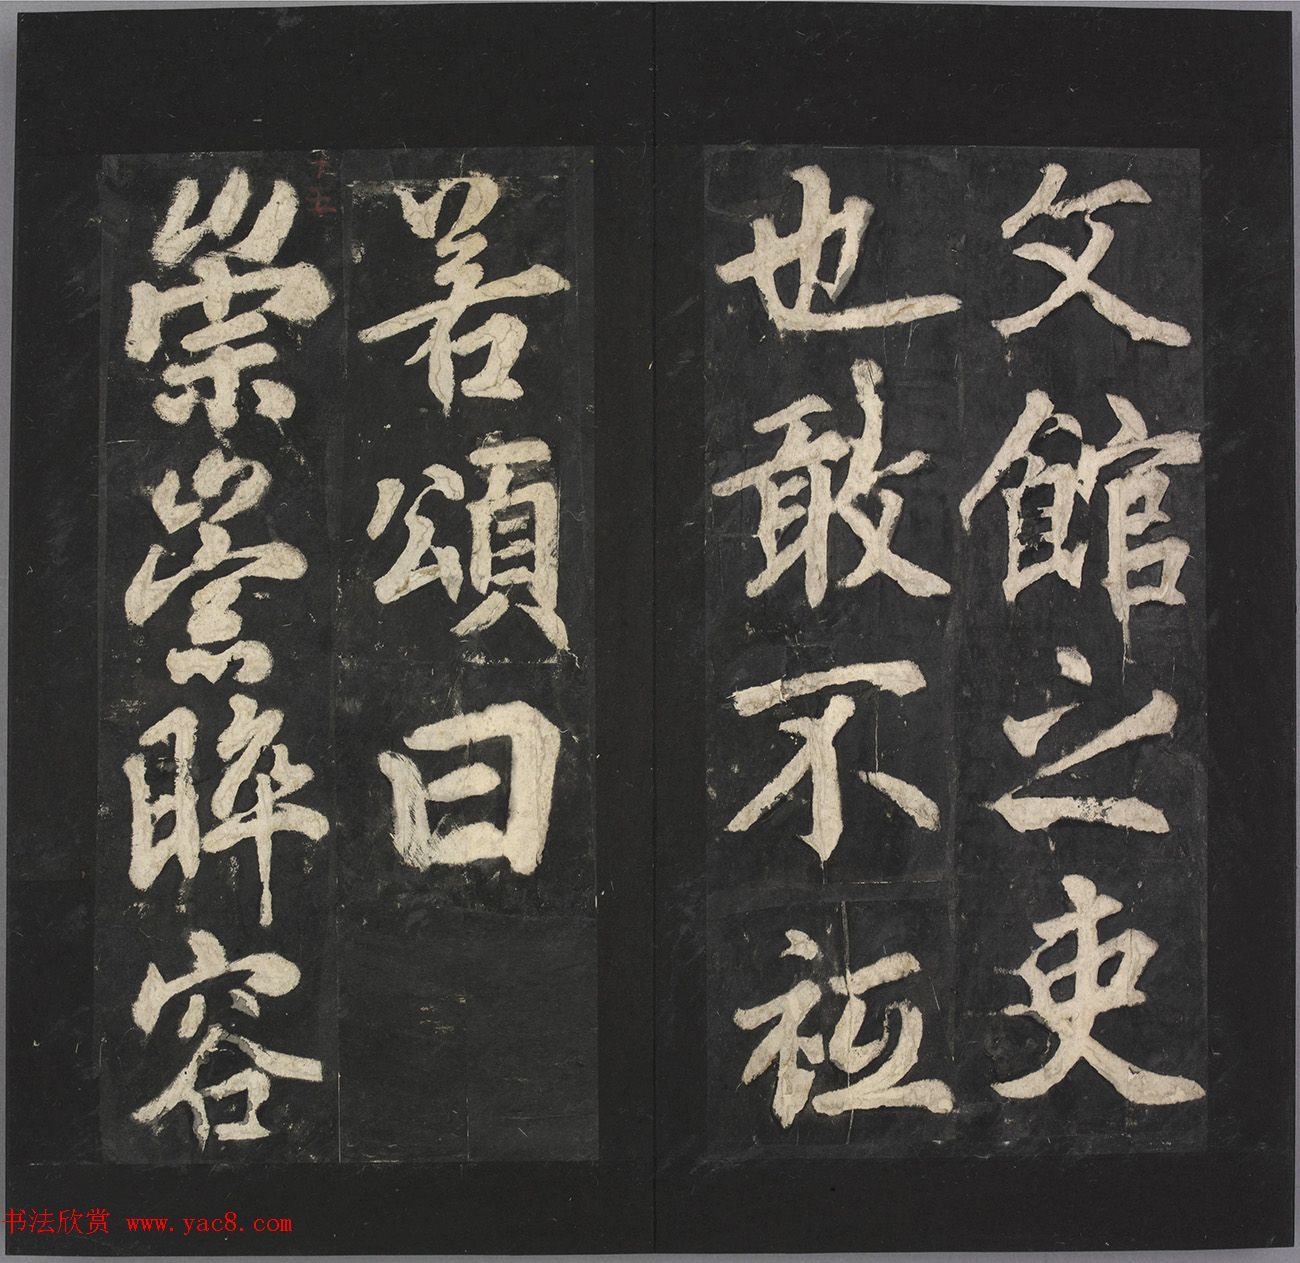 文館之吏
也敢不祗
若頌曰
崇崇睟容
十五
书法欣赏 www.yac8.com